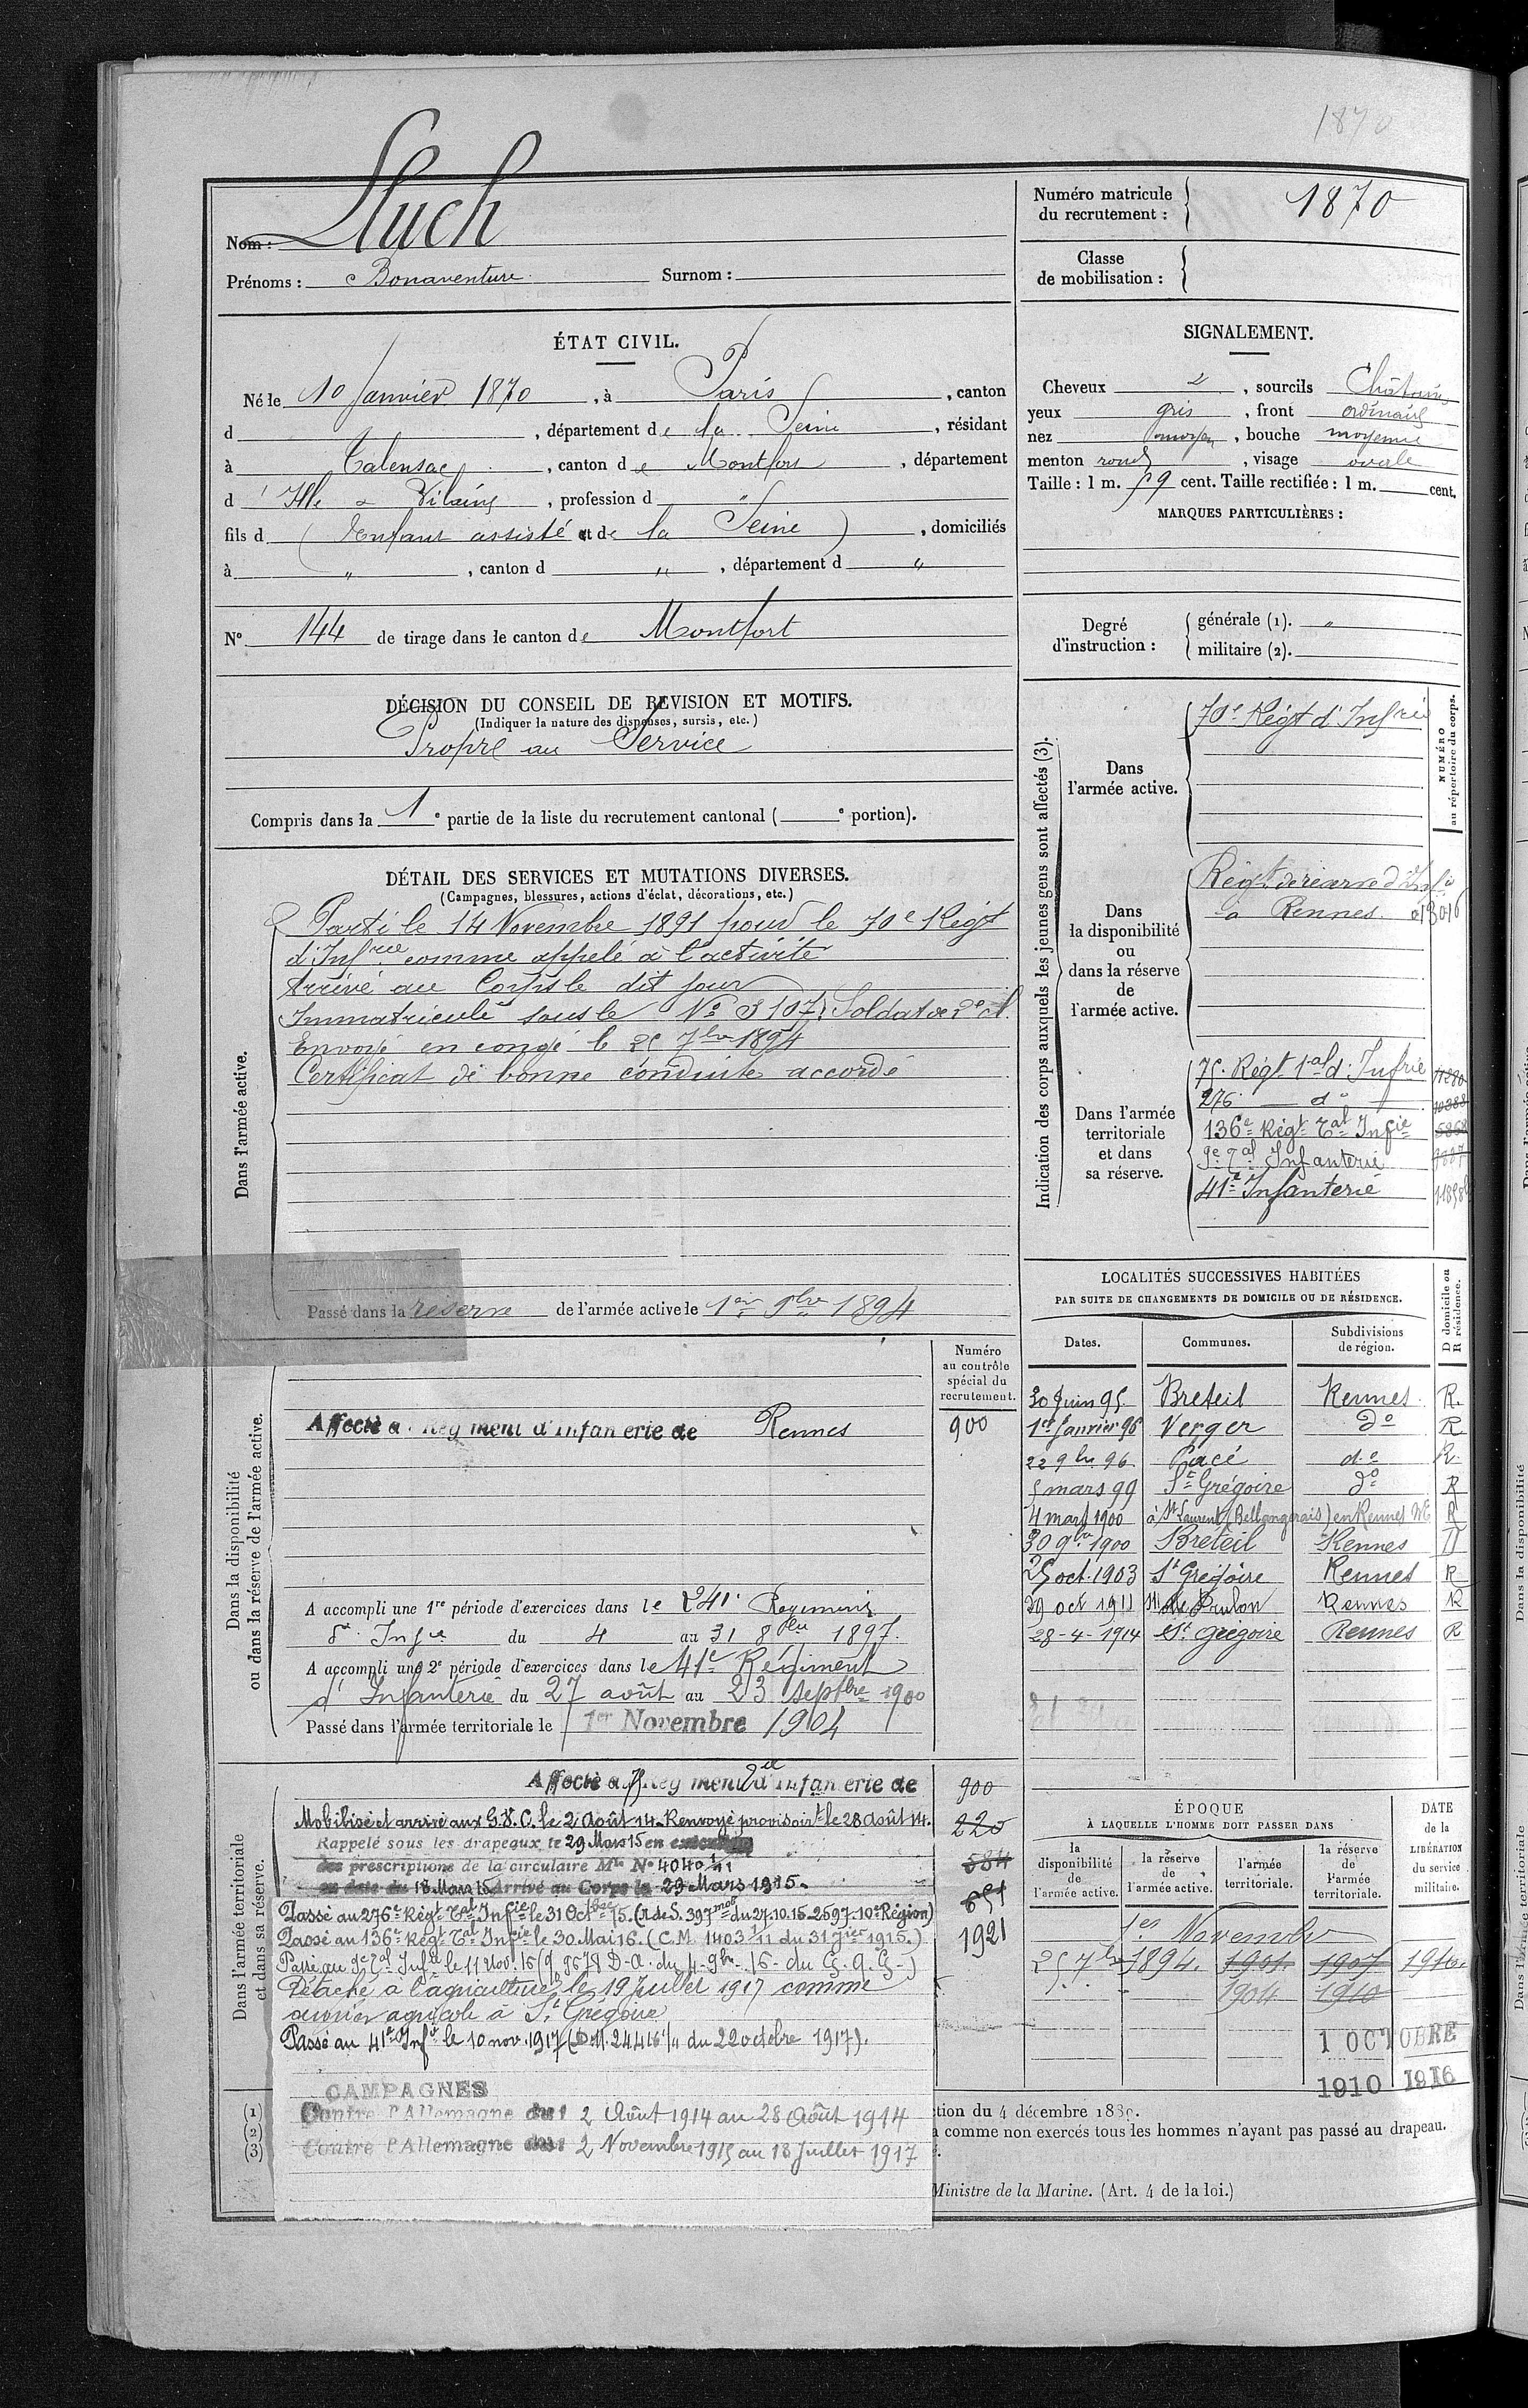 1870
Nom : Lluch
Prénoms : Bonaventure Surnom :
Numéro matricule du recrutement : 1870
Classe de mobilisation :
ÉTAT CIVIL.
Né le 10 Janvier 1870, à Paris, canton
d , département de la Seine, résidant
à Talensac, canton de Montfort, département
d'Ille & Vilaine, profession d "
fils d (Enfant assisté et de la Seine), domiciliés
à " , canton d " , département d "
N° 144 de tirage dans le canton de Montfort
SIGNALEMENT.
Cheveux , sourcils Châtains
yeux gris, front ordinaire
nez moyen, bouche moyenne
menton rond, visage ovale
Taille : 1 m. 59 cent. Taille rectifiée : 1 m. cent.
MARQUES PARTICULIÈRES :
Degré d'instruction :
générale (1). "
militaire (2).
DÉCISION DU CONSEIL DE REVISION ET MOTIFS.
(Indiquer la nature des dispenses, sursis, etc.)
Propre au Service
Compris dans la 1e partie de la liste du recrutement cantonal ( e portion).
DÉTAIL DES SERVICES ET MUTATIONS DIVERSES.
(Campagnes, blessures, actions d'éclat, décorations, etc.)
Dans l'armée active.
Parti le 14 Novembre 1891 pour le 70e Régt
d'Infrie comme appelé à l'activité
Arrivé au Corps le dit jour
Immatriculé sous le No 3107. Soldat de 2e cl.
Envoyé en congé le 25 7bre 1894
Certificat de bonne conduite accordé
Passé dans la réserve de l'armée active le 1er 9bre 1894
Indication des corps auxquels les jeunes gens sont affectés (3).
NUMÉRO au répertoire du corps.
Dans l'armée active.
70e Régt d'Infrie
Dans la disponibilité ou dans la réserve de l'armée active.
Régt de réserve d'Infie
à Rennes
Dans l'armée territoriale et dans sa réserve.
75e Régt Tal d'Infrie
276 do
136e Régt Tal Infie
9e Tal Infanterie
41e Infanterie
LOCALITÉS SUCCESSIVES HABITÉES
PAR SUITE DE CHANGEMENTS DE DOMICILE OU DE RÉSIDENCE.
Dates. Communes. Subdivisions de région. D domicile ou R résidence.
30 Juin 95 Breteil Rennes R.
1er Janvier 96 Verger do R
22 9bre 96 Pacé do R.
5 mars 99 St Grégoire do R
4 mars 1900 à St Laurent (Bellangerais) en Rennes R
30 9bre 1900 Breteil Rennes D
25 oct. 1903 St Grégoire Rennes R
29 oct 1911 Rennes R
28-4-1914 St Grégoire Rennes R
Dans la disponibilité ou dans la réserve de l'armée active.
Numéro au contrôle spécial du recrutement.
Affecté au Régiment d'Infanterie de Rennes 900
A accompli une 1re période d'exercices dans le 241e Régiment
d'Infie du 4 au 31 8bre 1897.
A accompli une 2e période d'exercices dans le 41e Régiment
d'Infanterie du 27 août au 23 septbre 1900
Passé dans l'armée territoriale le 1er Novembre 1904
Dans l'armée territoriale et dans sa réserve.
Affecté au Régiment d'Infanterie de
900
220
584
1921
Mobilisé et arrivé aux G.V.C. le 2 Août 14. Renvoyé provisoirt le 28 août 14.
Rappelé sous les drapeaux le 29 Mars 15 en exécution
des prescriptions de la circulaire Mle No 4040 1/11
en date du 18 Mars 15 Arrivé au Corps le 29 Mars 1915.
Passé au 276e Régt Tal Infie le 31 Octbre 15. (N. de S. 397 mob du 27.10.15-2597-10e Région)
Passé au 136e Régt Tal Infie le 30 Mai 16. (C.M. 1403 1/11 du 31 Jier 1916.)
Passé au 9e Tal Infie le 11 Nov. 16 ( D.A. du 4-9bre-16- du G.Q.G.)
Détaché à l'agriculture le 19 Juillet 1917 comme
ouvrier agricole à St Grégoire
Passé au 41e Infie le 10 nov. 1917 (D.M. 24416 1/11 du 22 octobre 1917).
CAMPAGNES
Contre l'Allemagne du 2 Août 1914 au 28 Août 1914
Contre l'Allemagne du 2 Novembre 1915 au 18 Juillet 1917
ÉPOQUE
À LAQUELLE L'HOMME DOIT PASSER DANS
la disponibilité de l'armée active.
la réserve de l'armée active.
l'armée territoriale.
la réserve de l'armée territoriale.
DATE de la LIBÉRATION du service militaire.
1er Novembre
25 7bre 1894. 1901 1907 1916
1904 1910
1 OCTOBRE
1910 1916
(1)
(2)
(3)
tion du 4 décembre 1889.
comme non exercés tous les hommes n'ayant pas passé au drapeau.
Ministre de la Marine. (Art. 4 de la loi.)